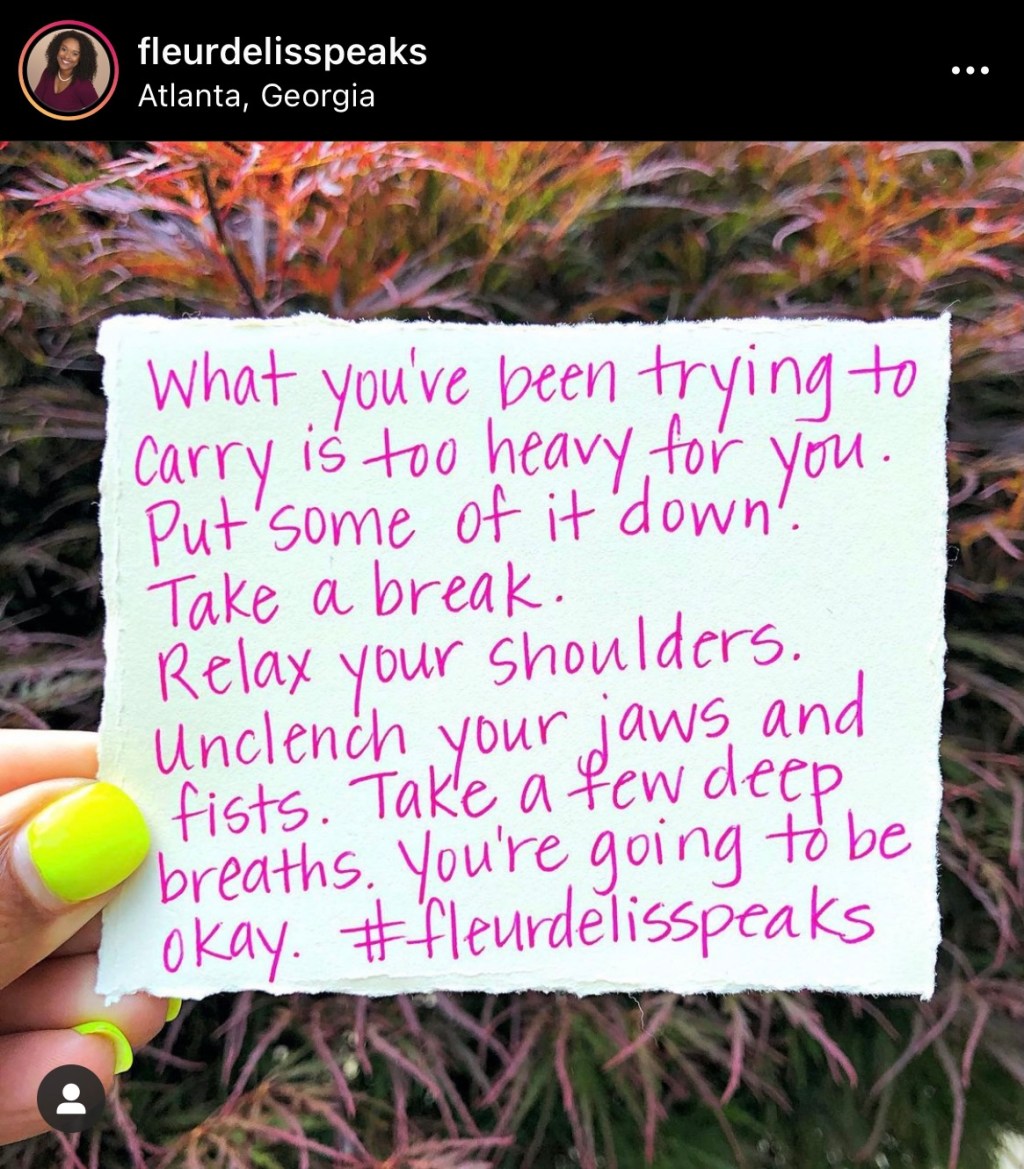 fleurdelisspeaks
Atlanta, Georgia
What you've been trying to
carry is too heavy for you.
Put some of it down.
Take a break.
Relax your shoulders.
Unclench your jaws and
fists. Take a few deep
breaths. You're going to be
okay. #fleurdelisspeaks